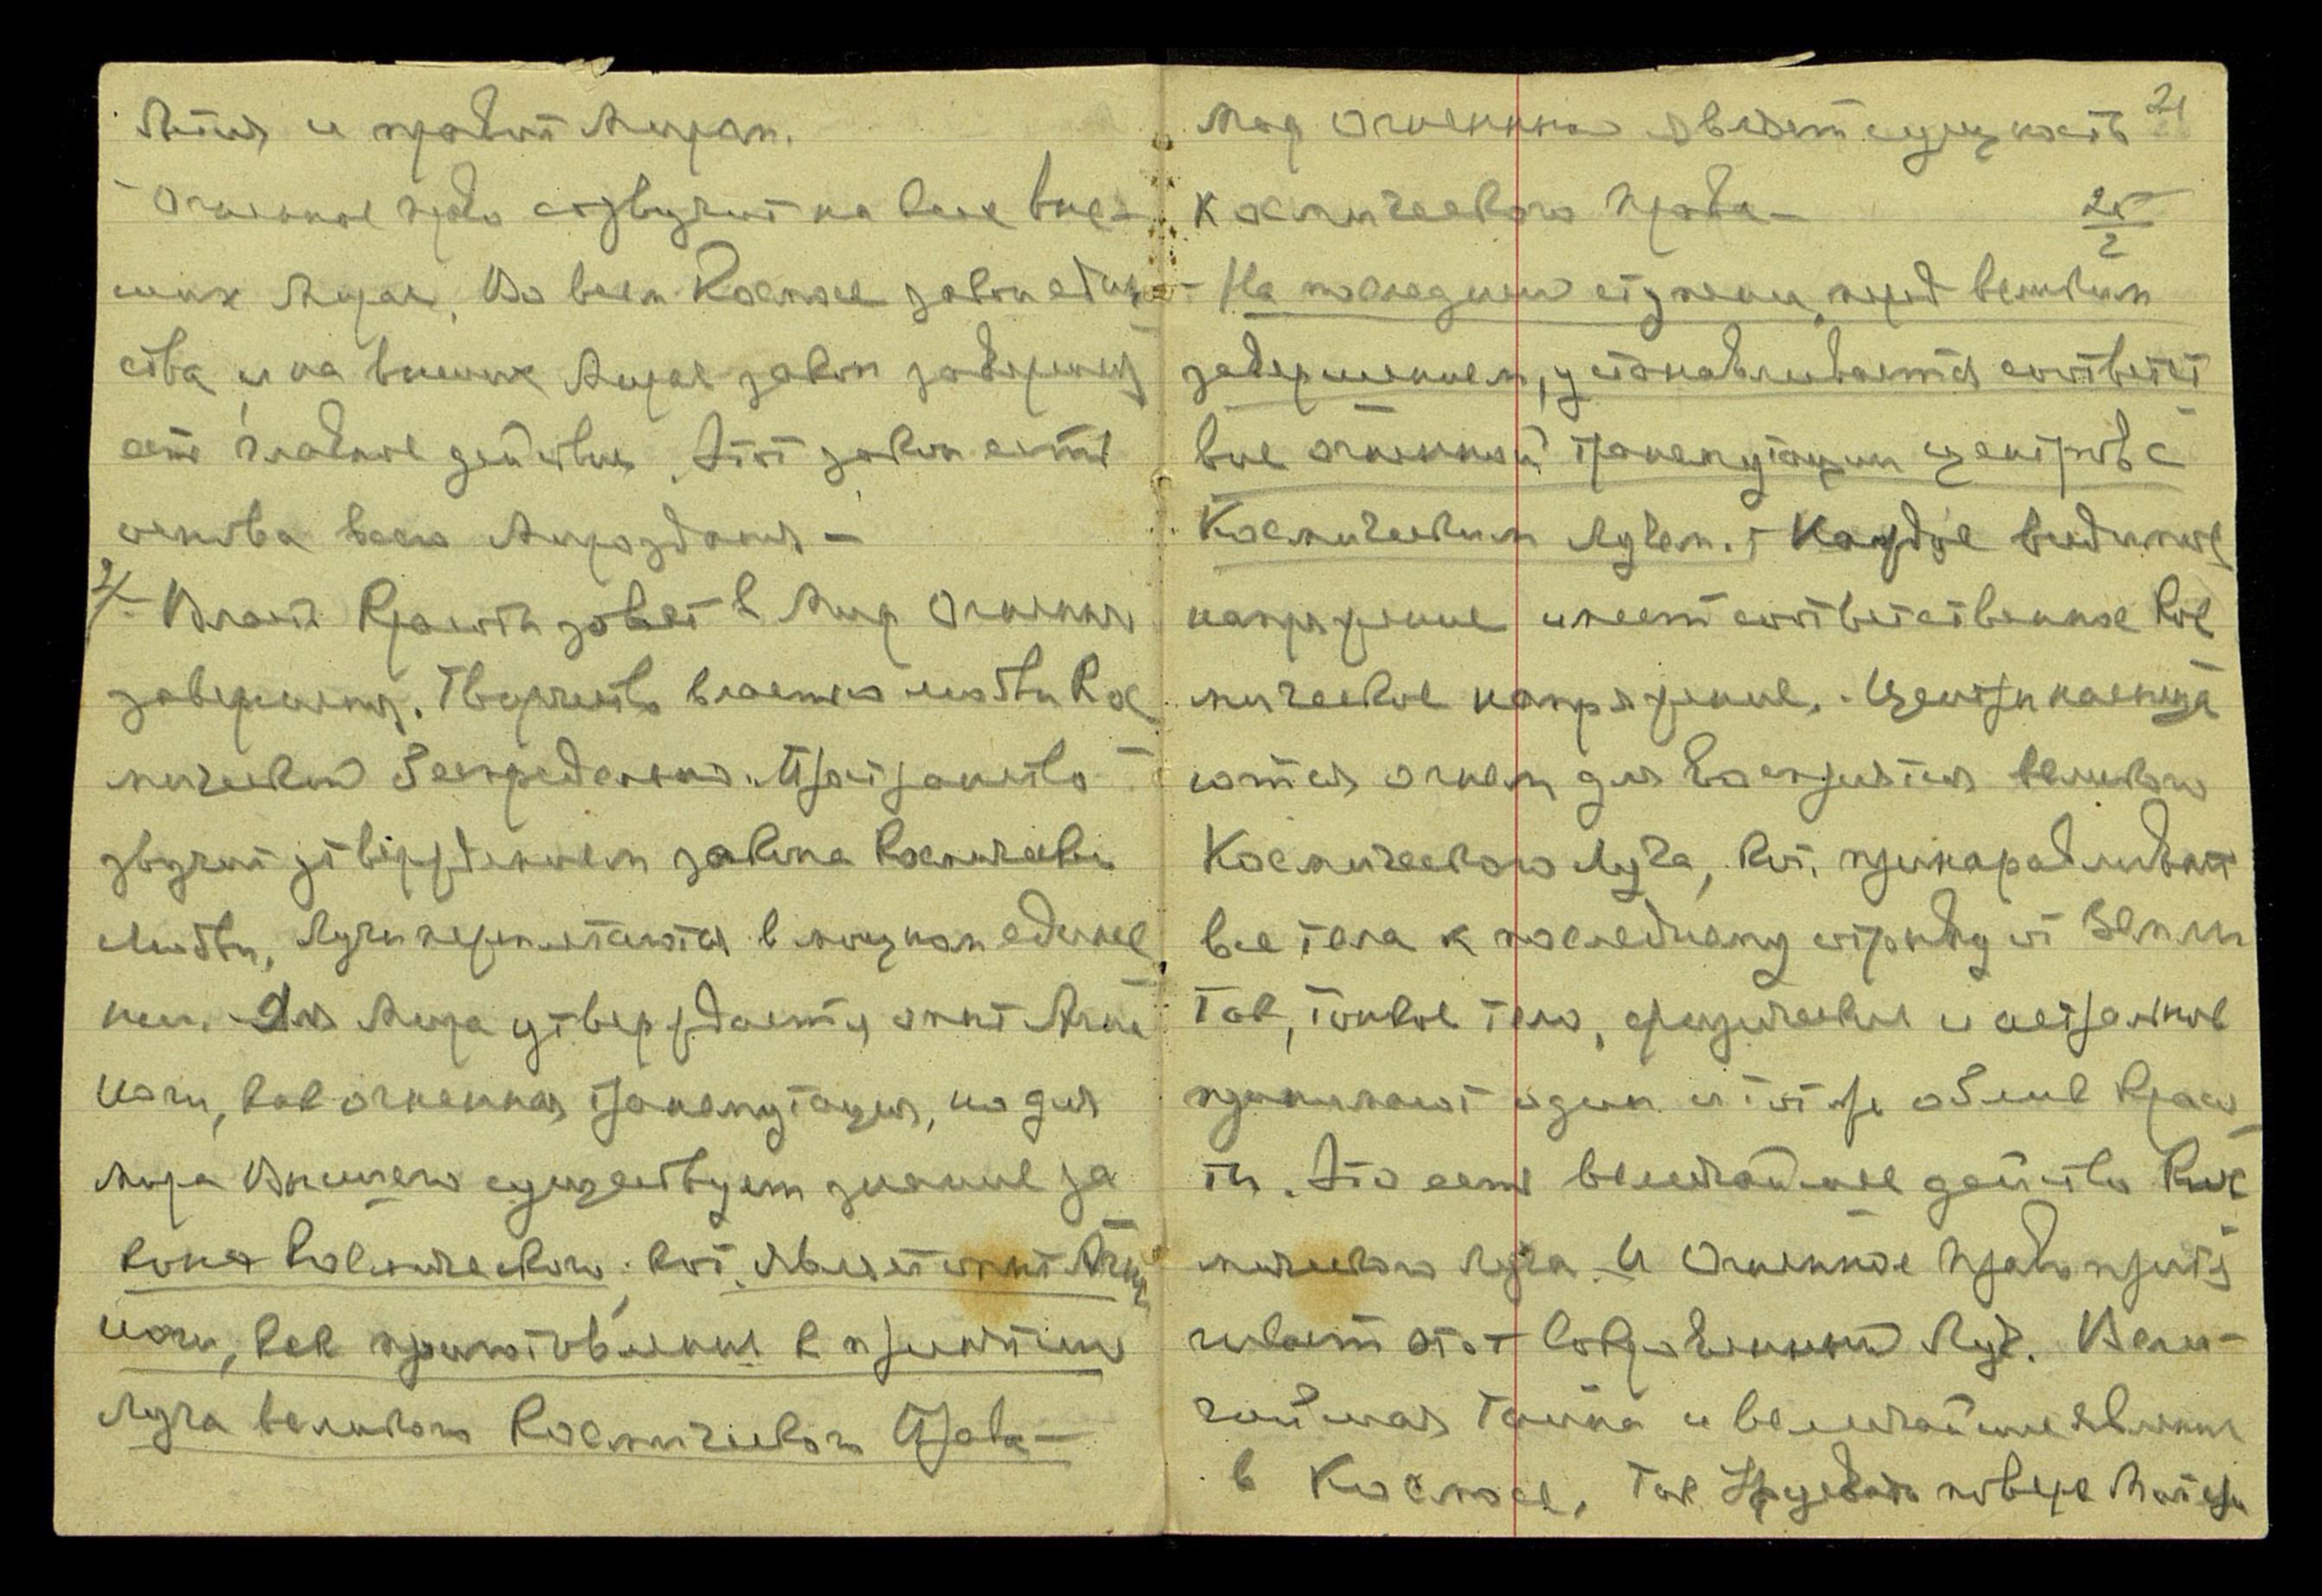 и правит Миром.
Огненное право созвучит на всех выс-
ших Мирах. Во всем Космосе закон един
ства, и на высших Мирах закон завершения
есть главное действие. Этот закон есть
основа всего Мироздания –
2/ – Власть Красоты зовет в Мир Огненного
завершения. Творчество властью любви Кос
мической беспредельно. Пространство
звучит утверждением закона Космической
Любви. Лучи переплетаются в мощном единые
нии. Для Мира утверждается опыт Агни
Йоги, как огненная трансмутация, но для
Мира Высшего существует знание за
кона Космического, кот. являет опыт Агни
Йоги, как приготовление к принятию
Луча великого Космического Права –
21
Мир Огненный являет сущность
Космического Права –
21/2
– На последней ступени, перед великим
завершением, устанавливается соответст
вие огненной трансмутации центров с
Космическим Лучем. – Каждое видимое
напряжение имеет соответственное Кос
мическое напряжение. – Центры насыща
ются огнем для восприятия великого
Космического Луча, кот. принаравливает
все тела к последнему отрыву от Земли
Так, тонкое тело, физическое и астральное
принимают один и тот же облик Красо
ты. Это есть величайшее действо Кос
мического Луча. – И Огненное Право притя
гивает этот сокровенный Луч. Вели-
чайшая тайна и величайшее явление
в Космосе. Так